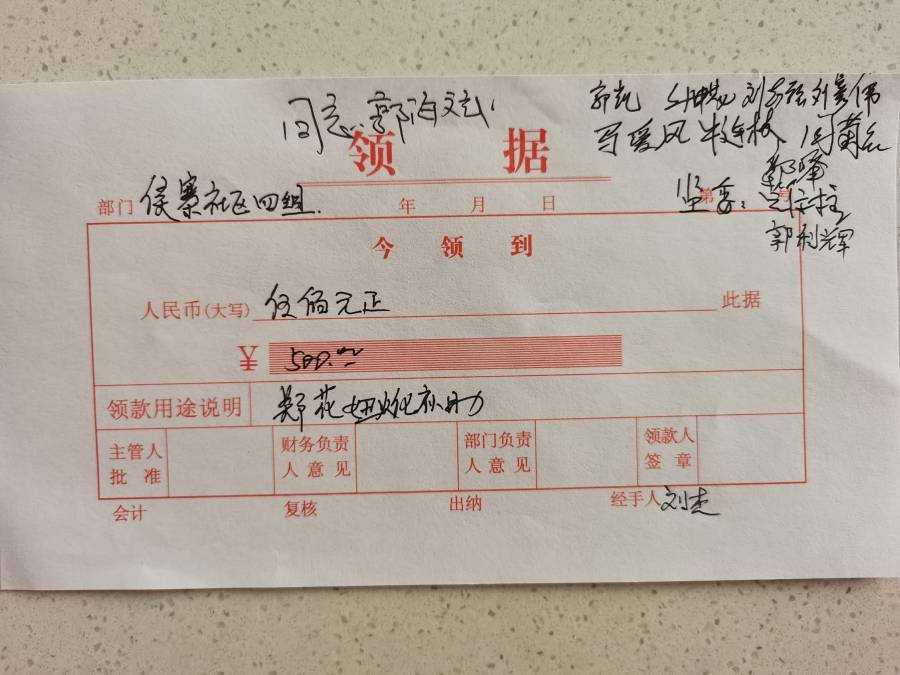 同意 郭
郭凯 刘 刘 伟
马爱风 牛 周菊红
领 据
部门 侯寨社区四组. 年 月 日 第 号
监委:
郭利辉
今 领 到
人民币(大写) 伍佰元正 此据
¥ 500.00
领款用途说明 郑花妞火化补助
主管人批准 财务负责人意见 部门负责人意见 领款人签章
会计 复核 出纳 经手人 刘杰